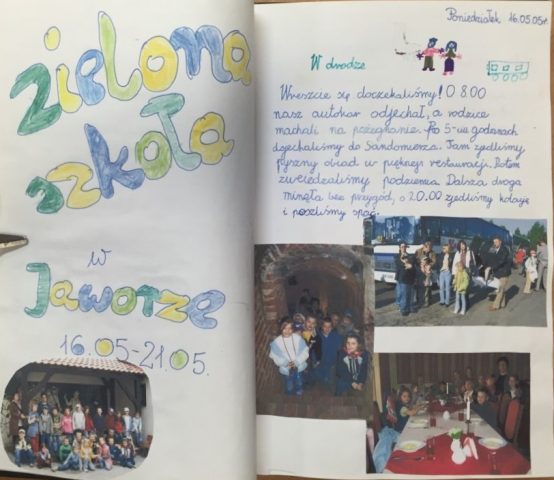 zielona
szkoła
w
Jaworze
16.05-21.05.
Poniedziałek 16.05.05r.
W drodze
Wreszcie się doczekaliśmy! O 8.00
nasz autokar odjechał, a rodzice
machali na pożegnanie. Po 5-ciu godzinach
dojechaliśmy do Sandomierza. Tam zjedliśmy
pyszny obiad w pięknej restauracji. Potem
zwiedzaliśmy podziemia. Dalsza droga
minęła bez przygód, o 20.00 zjedliśmy kolację
i poszliśmy spać.